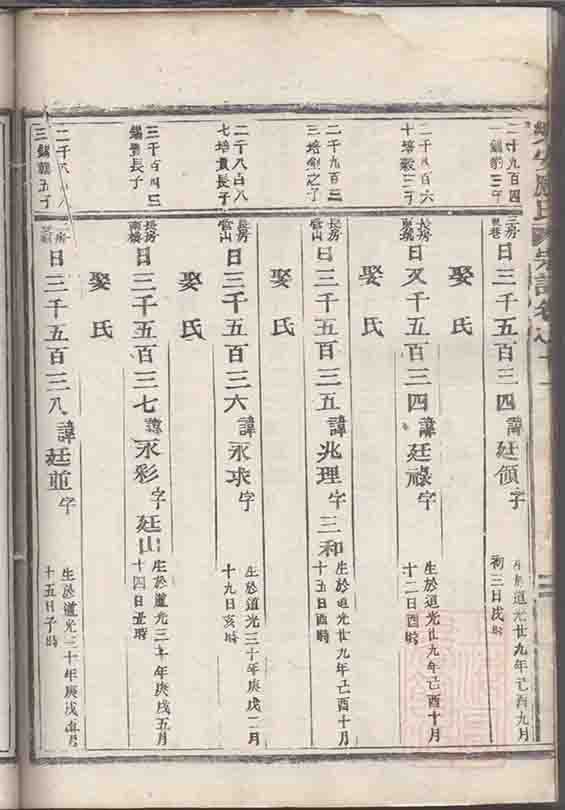 二千九百四
錫豹三子
三房
日三千五百三四諱廷領字
生於道光廿九年己酉九月
初三日戌時
娶氏
二千八百六
十培穀三子
長房
日又千五百三四諱廷祿字
生於道光廿九年己酉十月
十二日酉時
娶氏
二千九百三
三培
之子
長房
管山
日三千五百三五諱兆理字三和
生於道光廿九年己酉十月
十五日酉時
娶氏
二千八百八
七培貴長子
長房
管山
日三千五百三六諱永求字
生於道光三十年庚戌二月
十九日亥時
娶氏
三千百四三
錫豐長子
長房
南橋
日三千五百三七諱永彩字廷山
生於道光三十年庚戌五月
十四日丑時
娶氏
三錫
五子
日三千五百三八諱廷並字
生於道光三十年庚戌
月
十五日子時